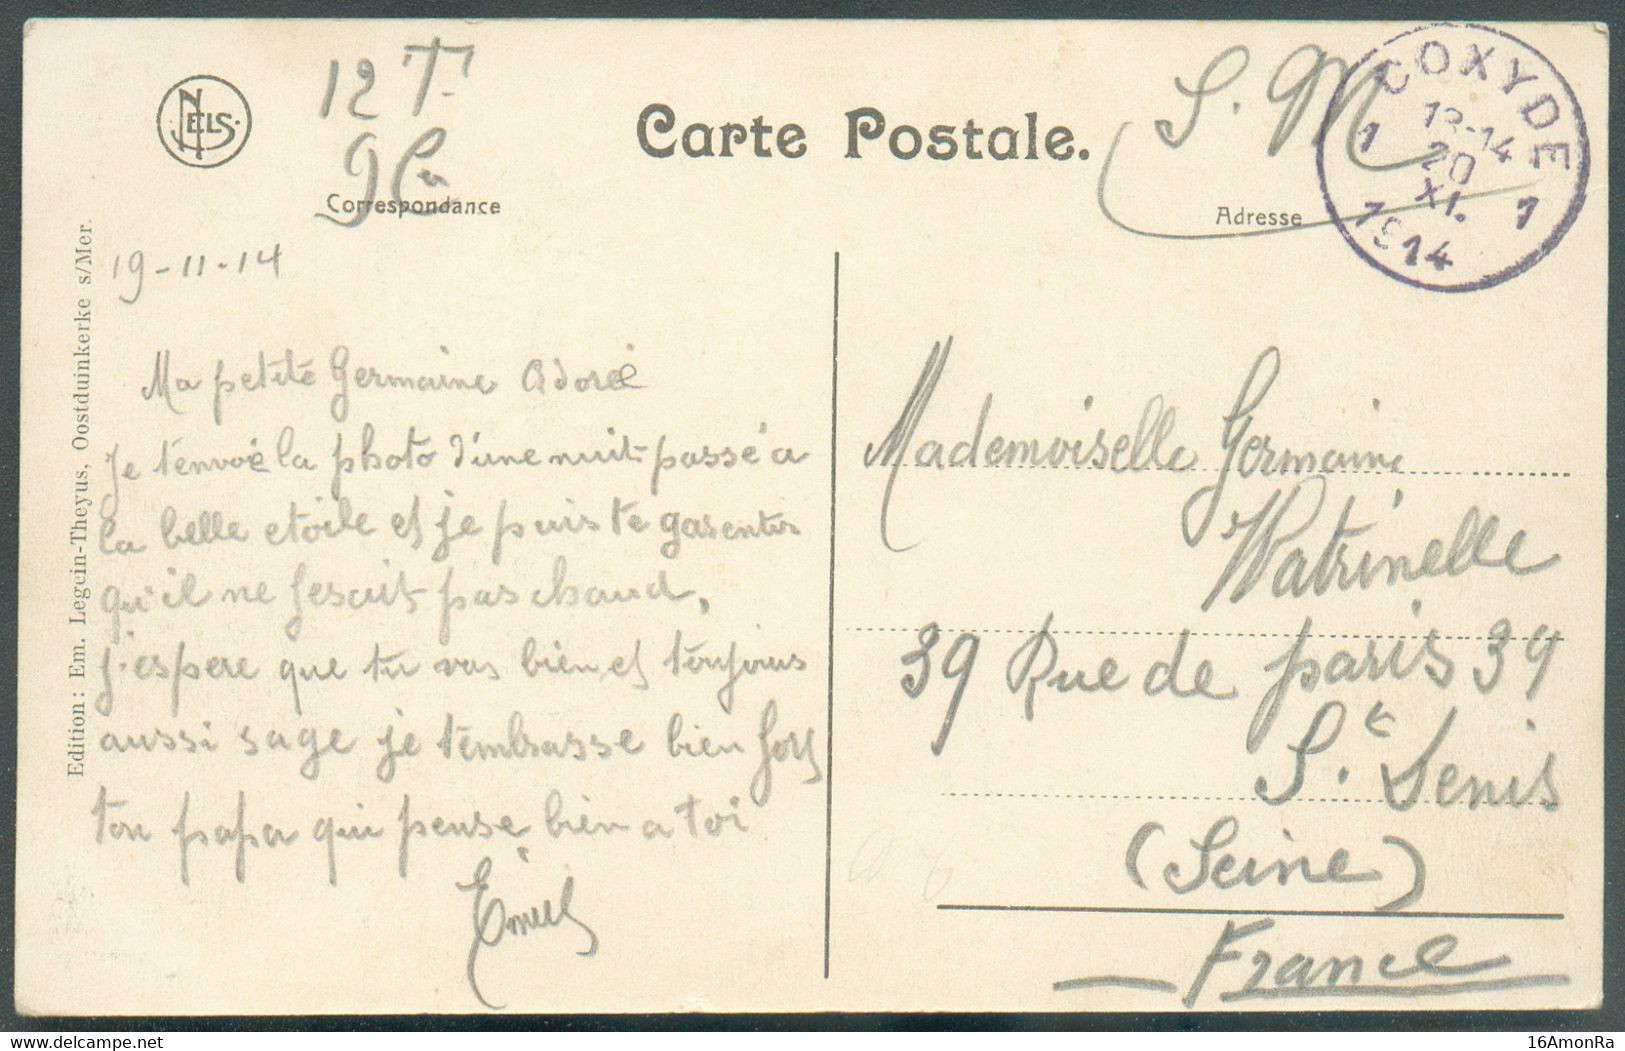 NELS.
12 T
9 Cie
Carte Postale.
S. M
COXYDE
13-14
1 20 1
XI.
1914
Correspondance
Adresse
Edition: Em. Legein-Theyus, Oostduinkerke s/Mer.
19-11-14
Ma petite Germaine Adoreé
Je t'envoie la photo d'une nuit passé a
la belle etoile et je puis te garentir
qu'il ne fesait pas chaud,
j'espere que tu vas bien et toujours
aussi sage je t'embrasse bien fort
ton papa qui pense bien a toi
Emiel
Mademoiselle Germaine
Watrinelle
39 Rue de paris 39
St. Denis
(Seine)
France
16AmonRa